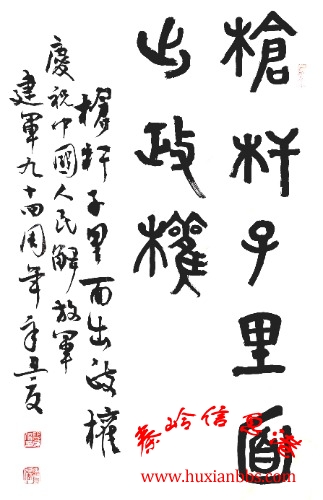 槍杆子里面
出政權
槍杆子里面出政權
慶祝中國人民解放軍
建軍九十四周年辛丑夏
秦岭信息港
www.huxianbbs.com